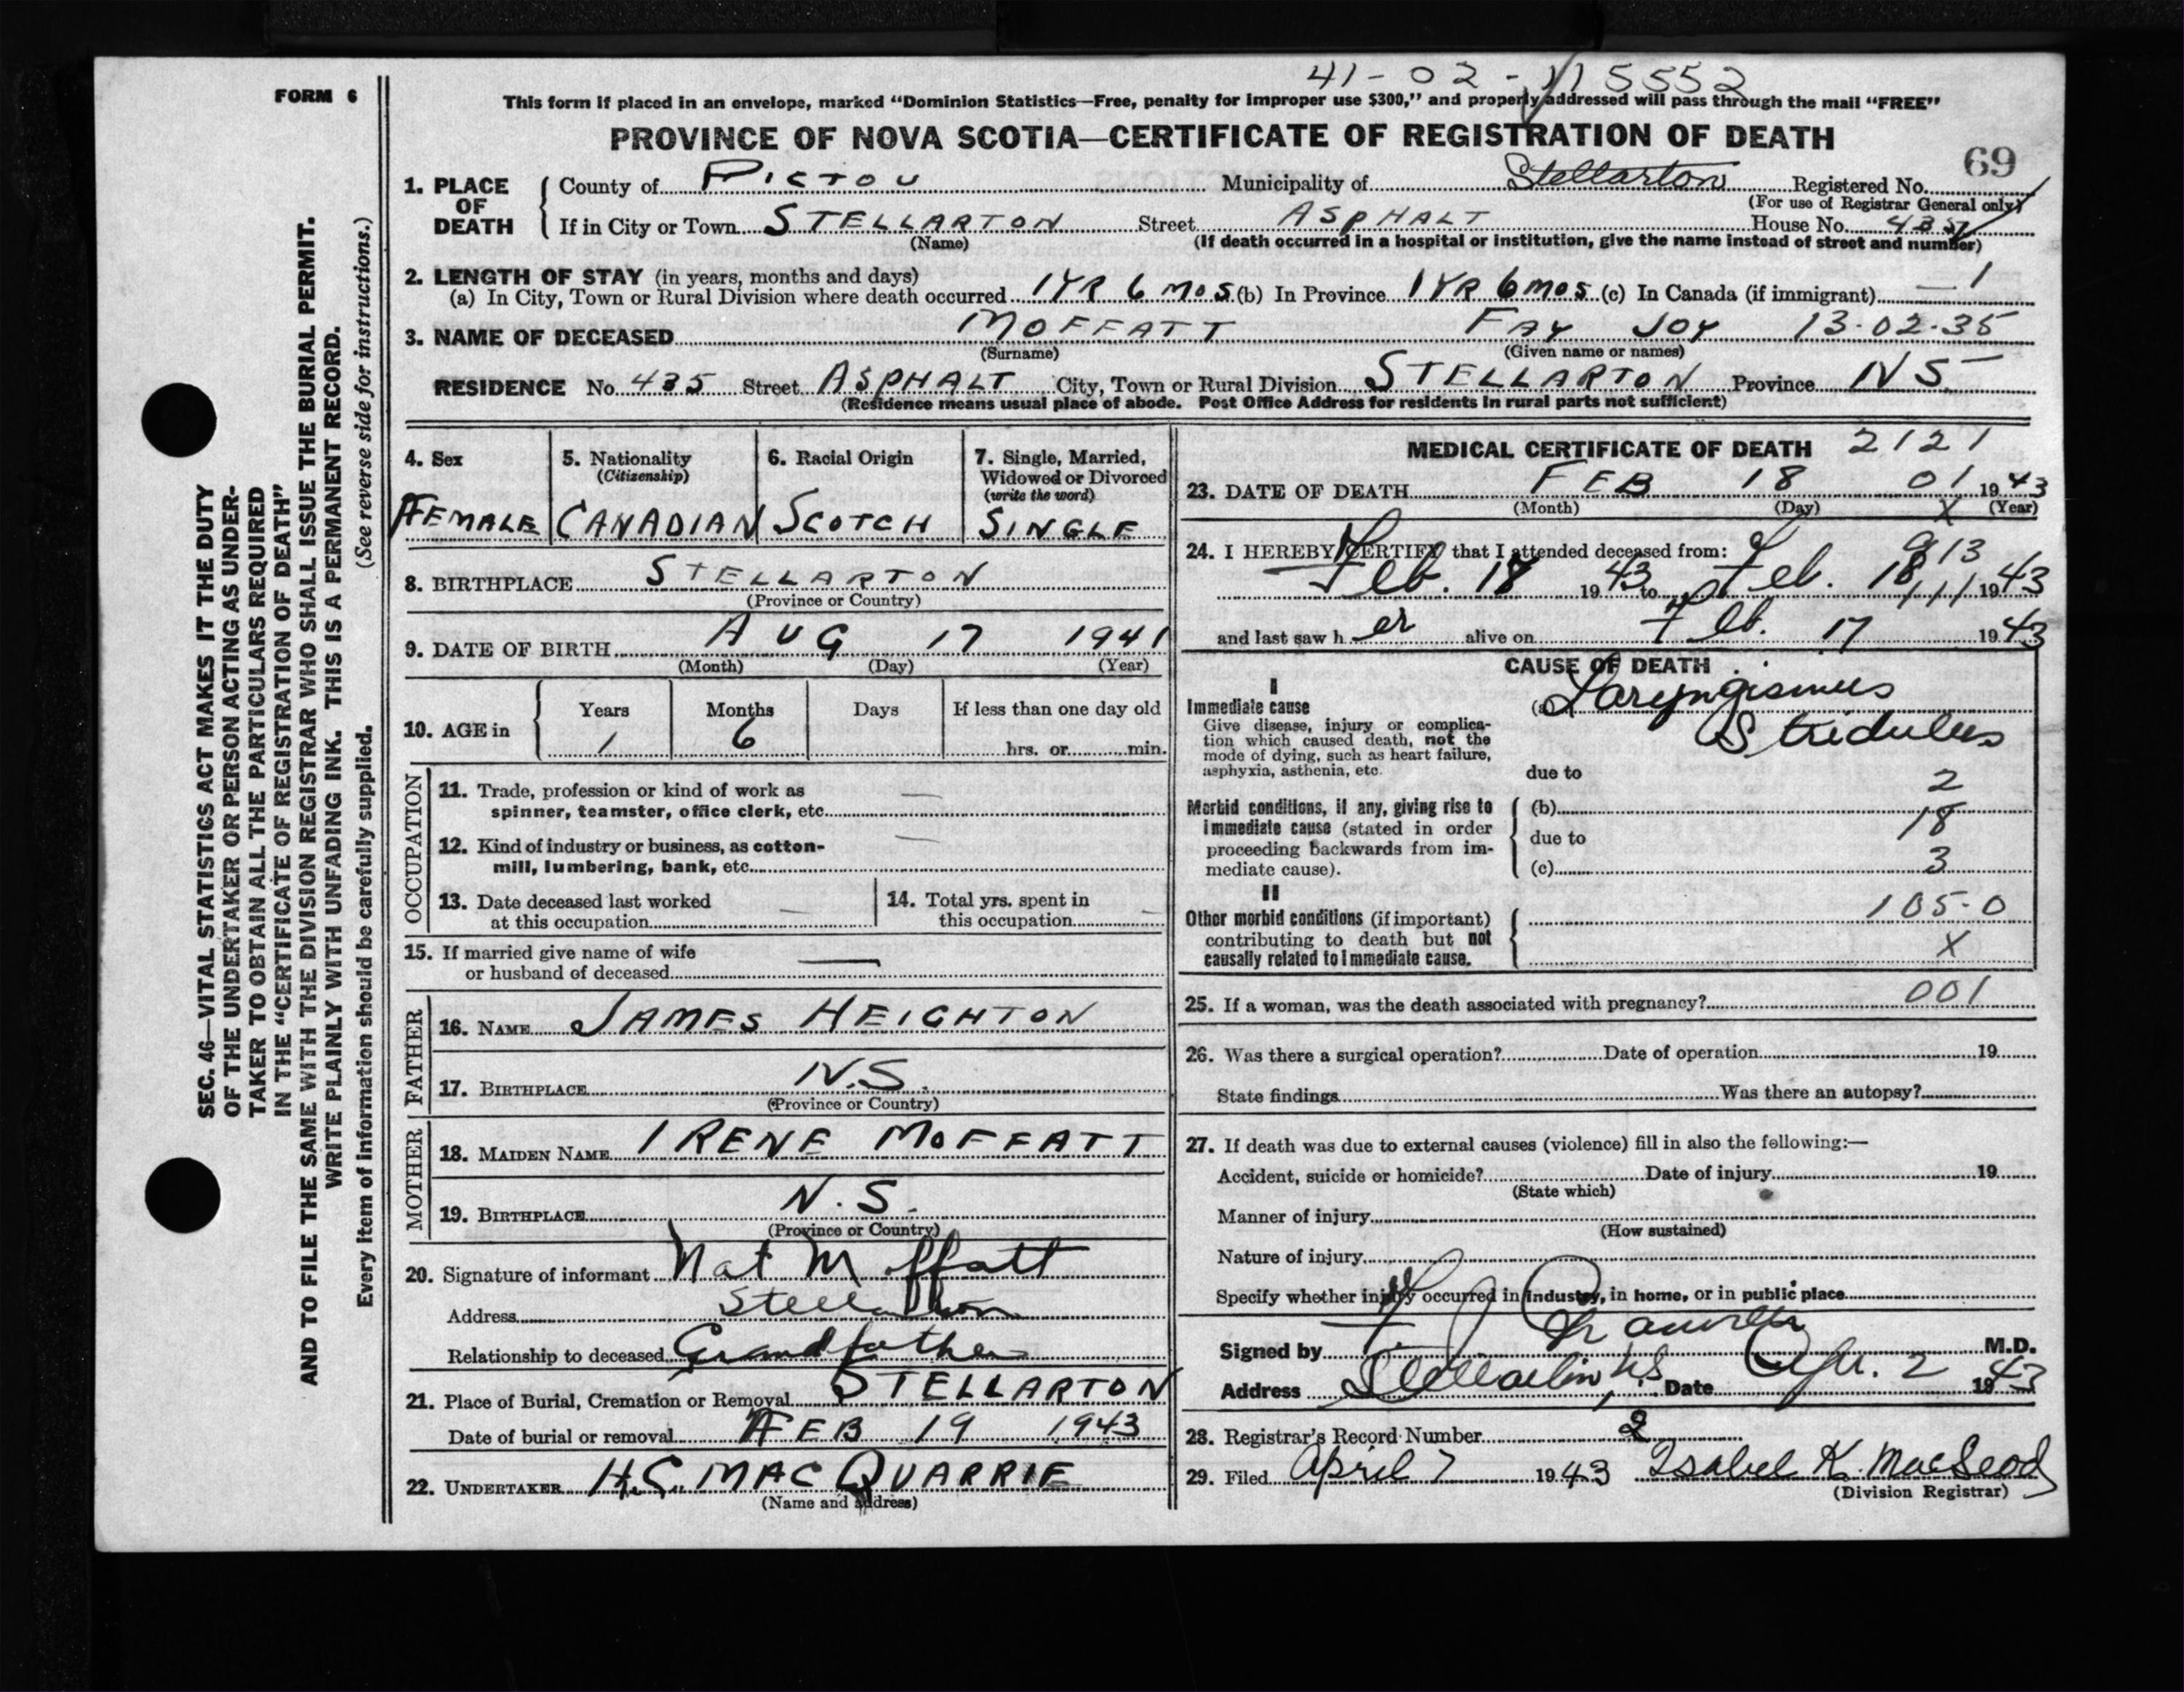 41-02-115552
FORM 6
This form if placed in an envelope, marked "Dominion Statistics—Free, penalty for improper use $300," and properly addressed will pass through the mail "FREE"
PROVINCE OF NOVA SCOTIA—CERTIFICATE OF REGISTRATION OF DEATH
69
1. PLACE OF DEATH County of PICTOU Municipality of Stellarton Registered No.
(For use of Registrar General only)
If in City or Town STELLARTON Street ASPHALT House No. 435
(Name) (If death occurred in a hospital or institution, give the name instead of street and number)
2. LENGTH OF STAY (in years, months and days)
(a) In City, Town or Rural Division where death occurred 1 YR 6 MOS (b) In Province 1 YR 6 MOS (c) In Canada (if immigrant) — 1
3. NAME OF DECEASED MOFFATT FAY JOY 13-02-35
(Surname) (Given name or names)
RESIDENCE No. 435 Street ASPHALT City, Town or Rural Division STELLARTON Province NS
(Residence means usual place of abode. Post Office Address for residents in rural parts not sufficient)
4. Sex
FEMALE
5. Nationality
(Citizenship)
CANADIAN
6. Racial Origin
SCOTCH
7. Single, Married,
Widowed or Divorced
(write the word)
SINGLE
8. BIRTHPLACE STELLARTON
(Province or Country)
9. DATE OF BIRTH AUG 17 1941
(Month) (Day) (Year)
10. AGE in Years Months Days If less than one day old
1 6 hrs. or min.
OCCUPATION
11. Trade, profession or kind of work as —
spinner, teamster, office clerk, etc.
12. Kind of industry or business, as cotton- —
mill, lumbering, bank, etc.
13. Date deceased last worked
at this occupation —
14. Total yrs. spent in
this occupation —
15. If married give name of wife
or husband of deceased —
FATHER
16. NAME JAMES HEIGHTON
17. BIRTHPLACE N.S.
(Province or Country)
MOTHER
18. MAIDEN NAME IRENE MOFFATT
19. BIRTHPLACE N.S.
(Province or Country)
20. Signature of informant Nat Moffatt
Address Stellarton
Relationship to deceased Grandfather
21. Place of Burial, Cremation or Removal STELLARTON
Date of burial or removal FEB 19 1943
22. UNDERTAKER H.C. MACQUARRIE
(Name and address)
MEDICAL CERTIFICATE OF DEATH 2121
23. DATE OF DEATH FEB 18 01 1943
(Month) (Day) X (Year)
24. I HEREBY CERTIFY that I attended deceased from: 913
Feb. 18 1943 to Feb. 18 111 1943
and last saw her alive on Feb. 17 1943
CAUSE OF DEATH
I
Immediate cause
Give disease, injury or complica-
tion which caused death, not the
mode of dying, such as heart failure,
asphyxia, asthenia, etc.
(a) Laryngismus
Stridulus
due to
2
Morbid conditions, if any, giving rise to
immediate cause (stated in order
proceeding backwards from im-
mediate cause).
(b)
18
due to
3
(c)
II
Other morbid conditions (if important)
contributing to death but not
causally related to immediate cause.
105-0
X
25. If a woman, was the death associated with pregnancy? 001
26. Was there a surgical operation? Date of operation 19
State findings Was there an autopsy?
27. If death was due to external causes (violence) fill in also the following:—
Accident, suicide or homicide? Date of injury 19
(State which)
Manner of injury
(How sustained)
Nature of injury
Specify whether injury occurred in industry, in home, or in public place
Signed by M.D.
Address Stellarton, N.S. Date Apr. 2 1943
28. Registrar's Record Number 2
29. Filed April 7 1943 Isabel K. MacLeod
(Division Registrar)
SEC. 46—VITAL STATISTICS ACT MAKES IT THE DUTY
OF THE UNDERTAKER OR PERSON ACTING AS UNDER-
TAKER TO OBTAIN ALL THE PARTICULARS REQUIRED
IN THE "CERTIFICATE OF REGISTRATION OF DEATH"
AND TO FILE THE SAME WITH THE DIVISION REGISTRAR WHO SHALL ISSUE THE BURIAL PERMIT.
WRITE PLAINLY WITH UNFADING INK. THIS IS A PERMANENT RECORD.
Every item of information should be carefully supplied. (See reverse side for instructions.)